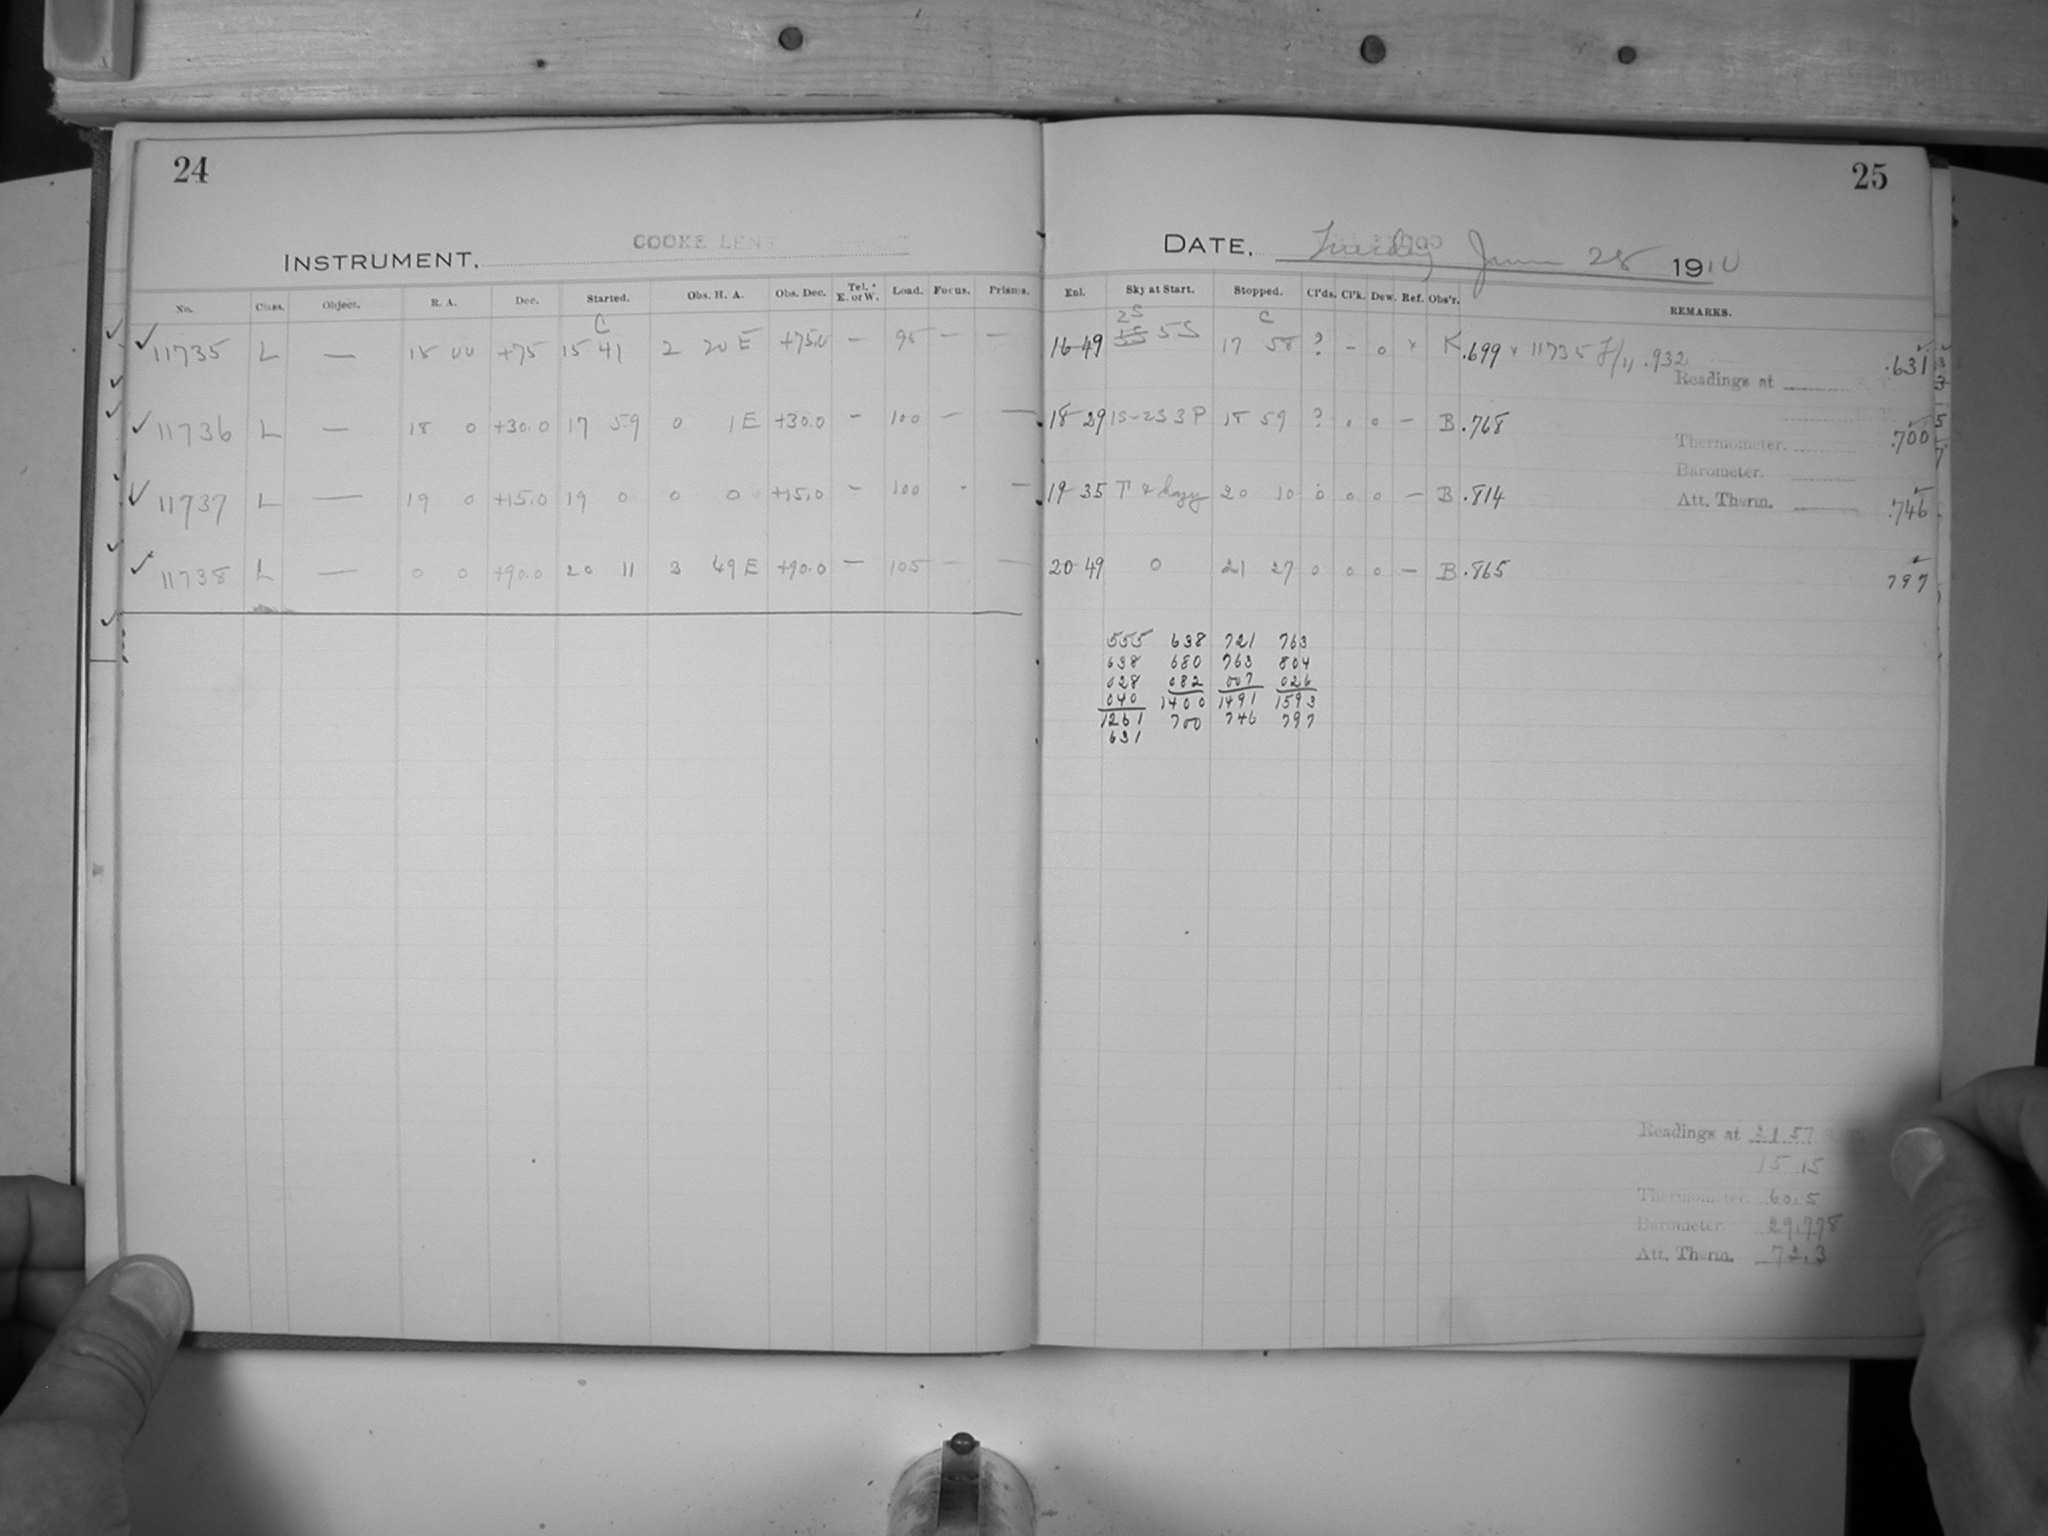 24
25
COOKE LENS
INSTRUMENT.
DATE. Tuesday June 28 1910
No. Class. Object. R. A. Dec. Started. Obs. H. A. Obs. Dec. Tel. E. or W. Load. Focus. Prisms. Enl. Sky at Start. Stopped. Cl'ds. Cl'k. Dew. Ref. Obs'r. REMARKS.
C 2S C
✓ 11735 L — 15 00 +75 15 41 2 20 E +75.0 — 95 — — 16-49 5S 17 58 ? - 0 × K .699 × 11735 .932 .631
Readings at
✓ 11736 L — 18 0 +30.0 17 59 0 1 E +30.0 — 100 — — 18-29 1S-2S 3P 18 59 ? . 0 — B .768 .700
Thermometer.
Barometer.
✓ 11737 L — 19 0 +15.0 19 0 0 0 +15.0 — 100 - — 19-35 20 10 0 0 0 — B .814 .746
Att. Therm.
✓ 11738 L — 0 0 +90.0 20 11 3 49 E +90.0 — 105 — — 20-49 0 21 27 0 0 0 — B .865 797
555 638 721 763
638 680 763 804
028 082 007 026
040 1400 1491 1593
1261 700 746 797
631
Readings at 21 57
15 15
Thermometer. 60.5
Barometer. 29.778
Att. Therm. 72.3